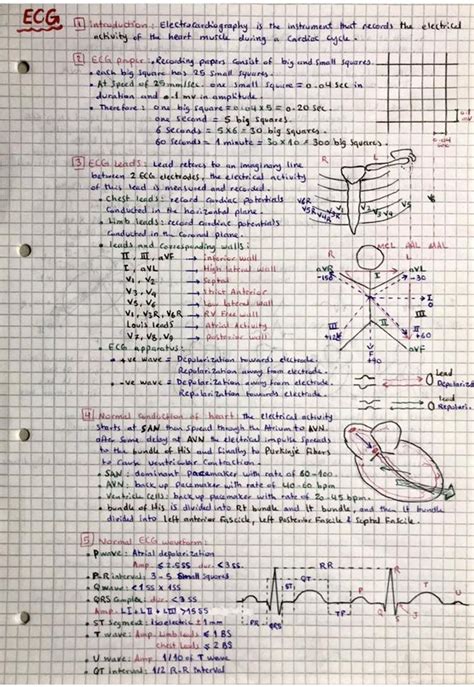 ECG
1 Introduction: Electrocardiography is the instrument that records the electrical
activity of the heart muscle during a cardiac cycle.
2 ECG paper: Recording papers consist of big and small squares.
• each big square has 25 small squares.
• At speed of 25 mm/sec. one small square = 0.04 sec in
duration and 0.1 mv in amplitude.
• Therefore: one big square = 0.04 x 5 = 0.20 sec.
one second = 5 big squares.
6 seconds = 5x6 = 30 big squares.
60 seconds = 1 minute = 30 x 10 = 300 big squares.
0.1 mv
0.04 sec
3 ECG Leads: Lead referes to an imaginary line
between 2 ECG electrodes, the electrical activity
of this lead is measured and recorded.
• Chest leads: record cardiac potentials
conducted in the horizontal plane.
• Limb leads: record cardiac potentials
conducted in the coronal plane.
• Leads and corresponding walls:
II, III, aVF → inferior wall
I, aVL → High lateral wall
V1, V2 → Septal
V3, V4 → Strict Anterior
V5, V6 → low lateral wall
V1, V3R, V6R → RV Free wall
Louis leads → atrial Activity
V7, V8, V9 → posterior walls
• ECG apparatus:
• +ve wave = Depolarization towards electrode.
Repolarization away from electrode.
• -ve wave = Depolarization away from electrode.
Repolarization towards electrode.
R
L
V6R
V1
V2
V3
V4
V5
V6
MCL AAL MAL
R
L
aVR
-150
aVL
-30
I
0
III
+120
II
+60
aVF
Lead
Depolariz
lead
Repolari
4 Normal conduction of heart: the electrical activity
starts at SAN than spread through the Atrium to AVN.
after some delay at AVN the electrical impulse spreads
to the bundle of His and finally to Purkinje Fibers
to cause ventricular contraction.
• SAN: dominant pacemaker with rate of 60-100
• AVN: back up pacemaker with rate of 40-60 bpm
• Ventricle cells: back up pacemaker with rate of 20-45 bpm.
• bundle of His is divided into Rt bundle and lt bundle, and then lt bundle
divided into left anterior Fascicle, Left Posterior Fascicle & Septal Fascicle.
5 Normal ECG waveform:
• P wave: Atrial depolarization
Amp. ≤ 2.5 SS dur. < 3 SS.
• P-R interval: 3 - 5 Small squares
• Q wave: < 1 SS x 1 SS
• QRS Complex: dur. < 3 SS
Amp. LI + LII + LIII > 15 SS
• ST segment: isoelectric ± 1 mm
• T wave: Amp. Limb leads ≤ 1 BS
Chest leads ≤ 2 BS
• U wave: Amp. 1/10 of T wave
• QT interval: 1/2 R-R interval
RR
QT
ST
PR
QRS
TP
R
P
Q
S
T
U